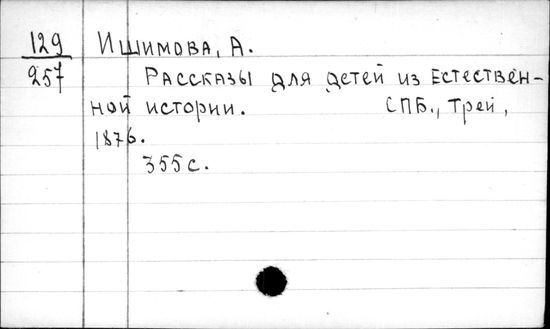 129 Ишимова, А.
257 Рассказы для детей из Естествен-
ной истории. СПБ., Трей,
1876.
355 с.